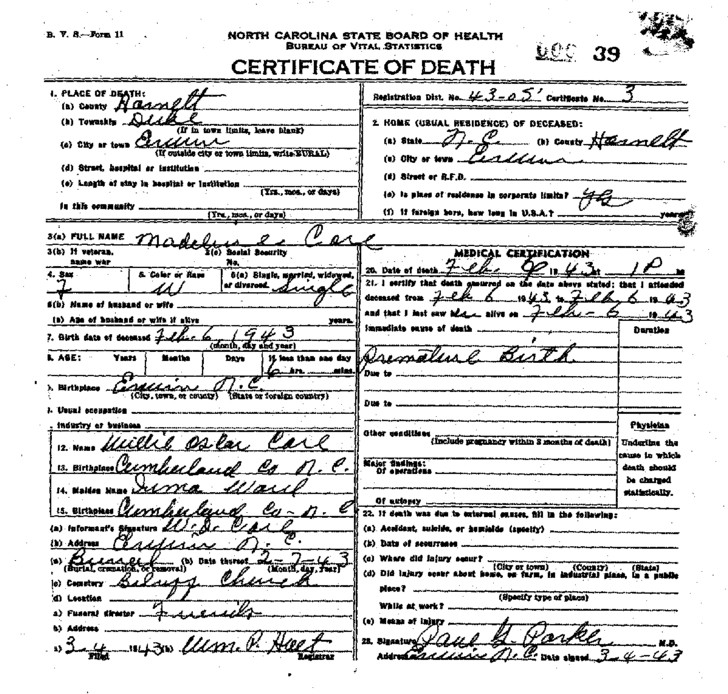 B. V. S.—Form 11
NORTH CAROLINA STATE BOARD OF HEALTH
BUREAU OF VITAL STATISTICS
CERTIFICATE OF DEATH
39
1. PLACE OF DEATH:
(a) County Harnett
(b) Township Duke
(If in town limits, leave blank)
(c) City or town Erwin
(If outside city or town limits, write RURAL)
(d) Street, hospital or institution
(e) Length of stay in hospital or institution
(Yrs., mos., or days)
In this community
(Yrs., mos., or days)
Registration Dist. No. 43-05 Certificate No. 3
2. HOME (USUAL RESIDENCE) OF DECEASED:
(a) State N.C. (b) County Harnett
(c) City or town Erwin
(d) Street or R.F.D.
(e) Is place of residence in corporate limits? Yes
(f) If foreign born, how long in U.S.A.? years
3(a) FULL NAME Madeline
3(b) If veteran, name war
3(c) Social Security No.
4. Sex F
5. Color or Race W
6(a) Single, married, widowed, or divorced Single
6(b) Name of husband or wife
(c) Age of husband or wife if alive years.
7. Birth date of deceased Feb. 6 1943
(Month, day and year)
8. AGE: Years Months Days If less than one day
6 hrs. mins.
9. Birthplace Erwin N.C.
(City, town, or county) (State or foreign country)
10. Usual occupation
Industry or business
12. Name Willie Oscar
13. Birthplace Cumberland Co N.C.
14. Maiden Name Irma Ward
15. Birthplace Cumberland Co - N.C
(a) Informant's Signature
(b) Address Erwin N.C.
(a) (b) Date thereof 2-7-43
(Burial, cremation, or removal) (Month, day, year)
(c) Cemetery Church
(d) Location
(a) Funeral director Friends
(b) Address
3-4 1943 (b) Wm. P.
Filed Registrar
MEDICAL CERTIFICATION
20. Date of death Feb. 1943 at 1 P m
21. I certify that death occurred on the date above stated; that I attended
deceased from Feb 6 1943, to Feb, 6 1943
and that I last saw alive on Feb - 6 1943
Immediate cause of death Duration
Premature Birth
Due to
Due to
Other conditions
(Include pregnancy within 3 months of death)
Major findings:
Of operations
Of autopsy
Physician
Underline the cause to which death should be charged statistically.
22. If death was due to external causes, fill in the following:
(a) Accident, suicide, or homicide (specify)
(b) Date of occurrence
(c) Where did injury occur?
(City or town) (County) (State)
(d) Did injury occur about home, on farm, in industrial place, in a public
place?
(Specify type of place)
While at work?
(e) Means of injury
23. Signature Paul G Parker M.D.
Address Erwin N.C. Date signed 3-4-43